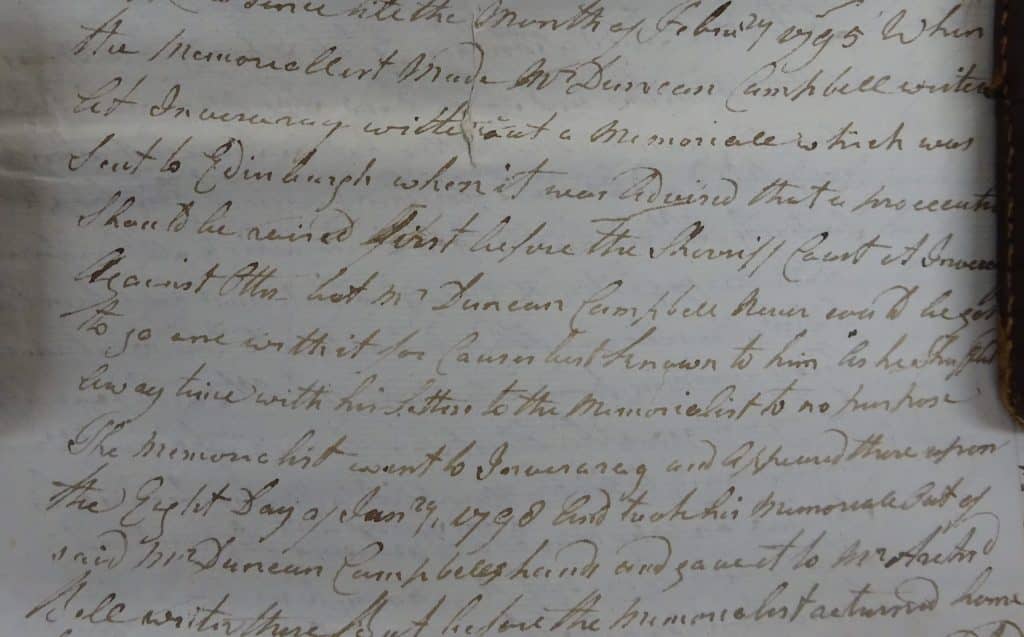 since the Month of Febru^ry 1795 When
the Memoriallist Made M^r Duncan Campbell writer
att Inveraray write out a Memoriall which was
Sent to Edinburgh when it was Adviced that a proccecutn
Should be raised first before the Sherriff Court at Invera
Against Ottr but M^r Duncan Campbell Never would be got
to go one with it for Causes best known to him As he
away time with his Letters to the Memorialist to no purpose
The Memorialist went to Inveraray and Appeared there upon
the Eight Day of Jan^ry, 1798 And took his Memoriall out of
said M^r Duncan Campbells hands and gave it to M^r Archbd
Bell writer there But before the Memorialist returned home